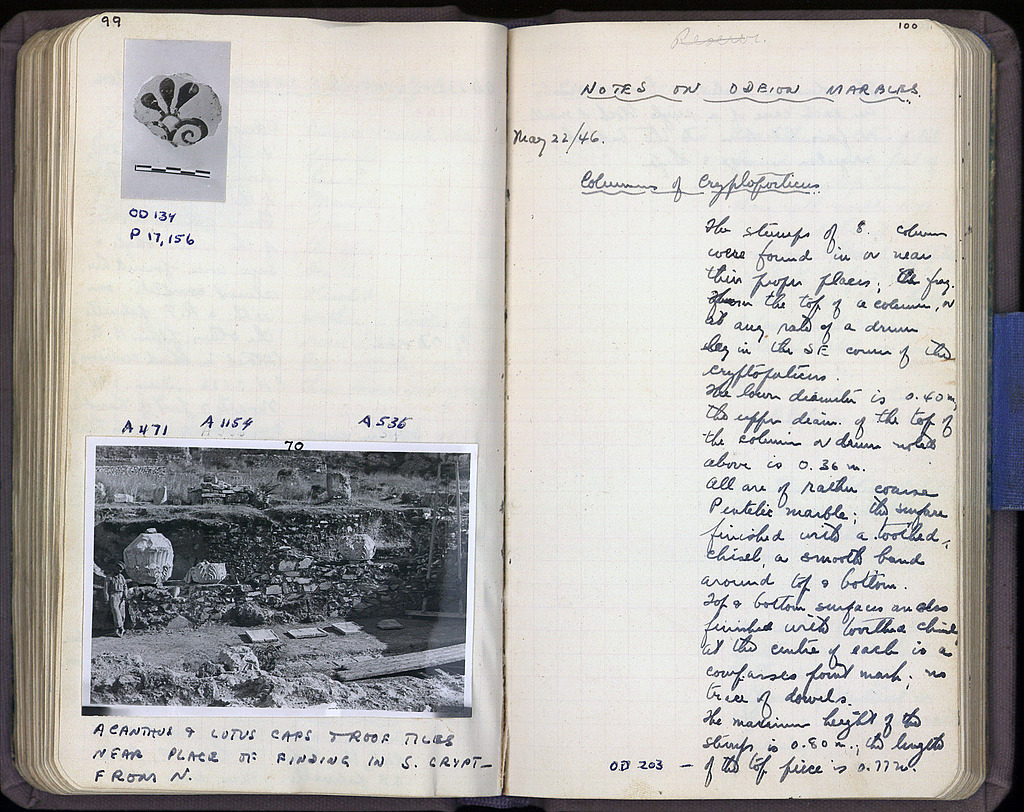 99
OD 134
P 17,156
A 471 A 1154 A 535
70
ACANTHUS & LOTUS CAPS & ROOF TILES
NEAR PLACE OF FINDING IN S. CRYPT-
FROM N.
100
NOTES ON ODEION MARBLES.
May 22/46.
Columns of Cryptoporticus
The stumps of 8. column
were found in or near
their proper places; the frag.
from the top of a column, or
at any rate of a drum
lay in the SE corner of the
cryptoporticus.
The lower diameter is 0.40 m,
the upper diam. of the top of
the column or drum noted
above is 0.36 m.
All are of rather coarse
Pentelic marble; the surface
finished with a toothed-
chisel, a smooth band
around top & bottom.
Top & bottom surfaces are also
finished with toothed chisel
at the centre of each is a
compasses point mark; no
trace of dowels.
The maximum height of the
stumps is 0.80 m.; the length
OD 203 — of the top piece is 0.77 m.